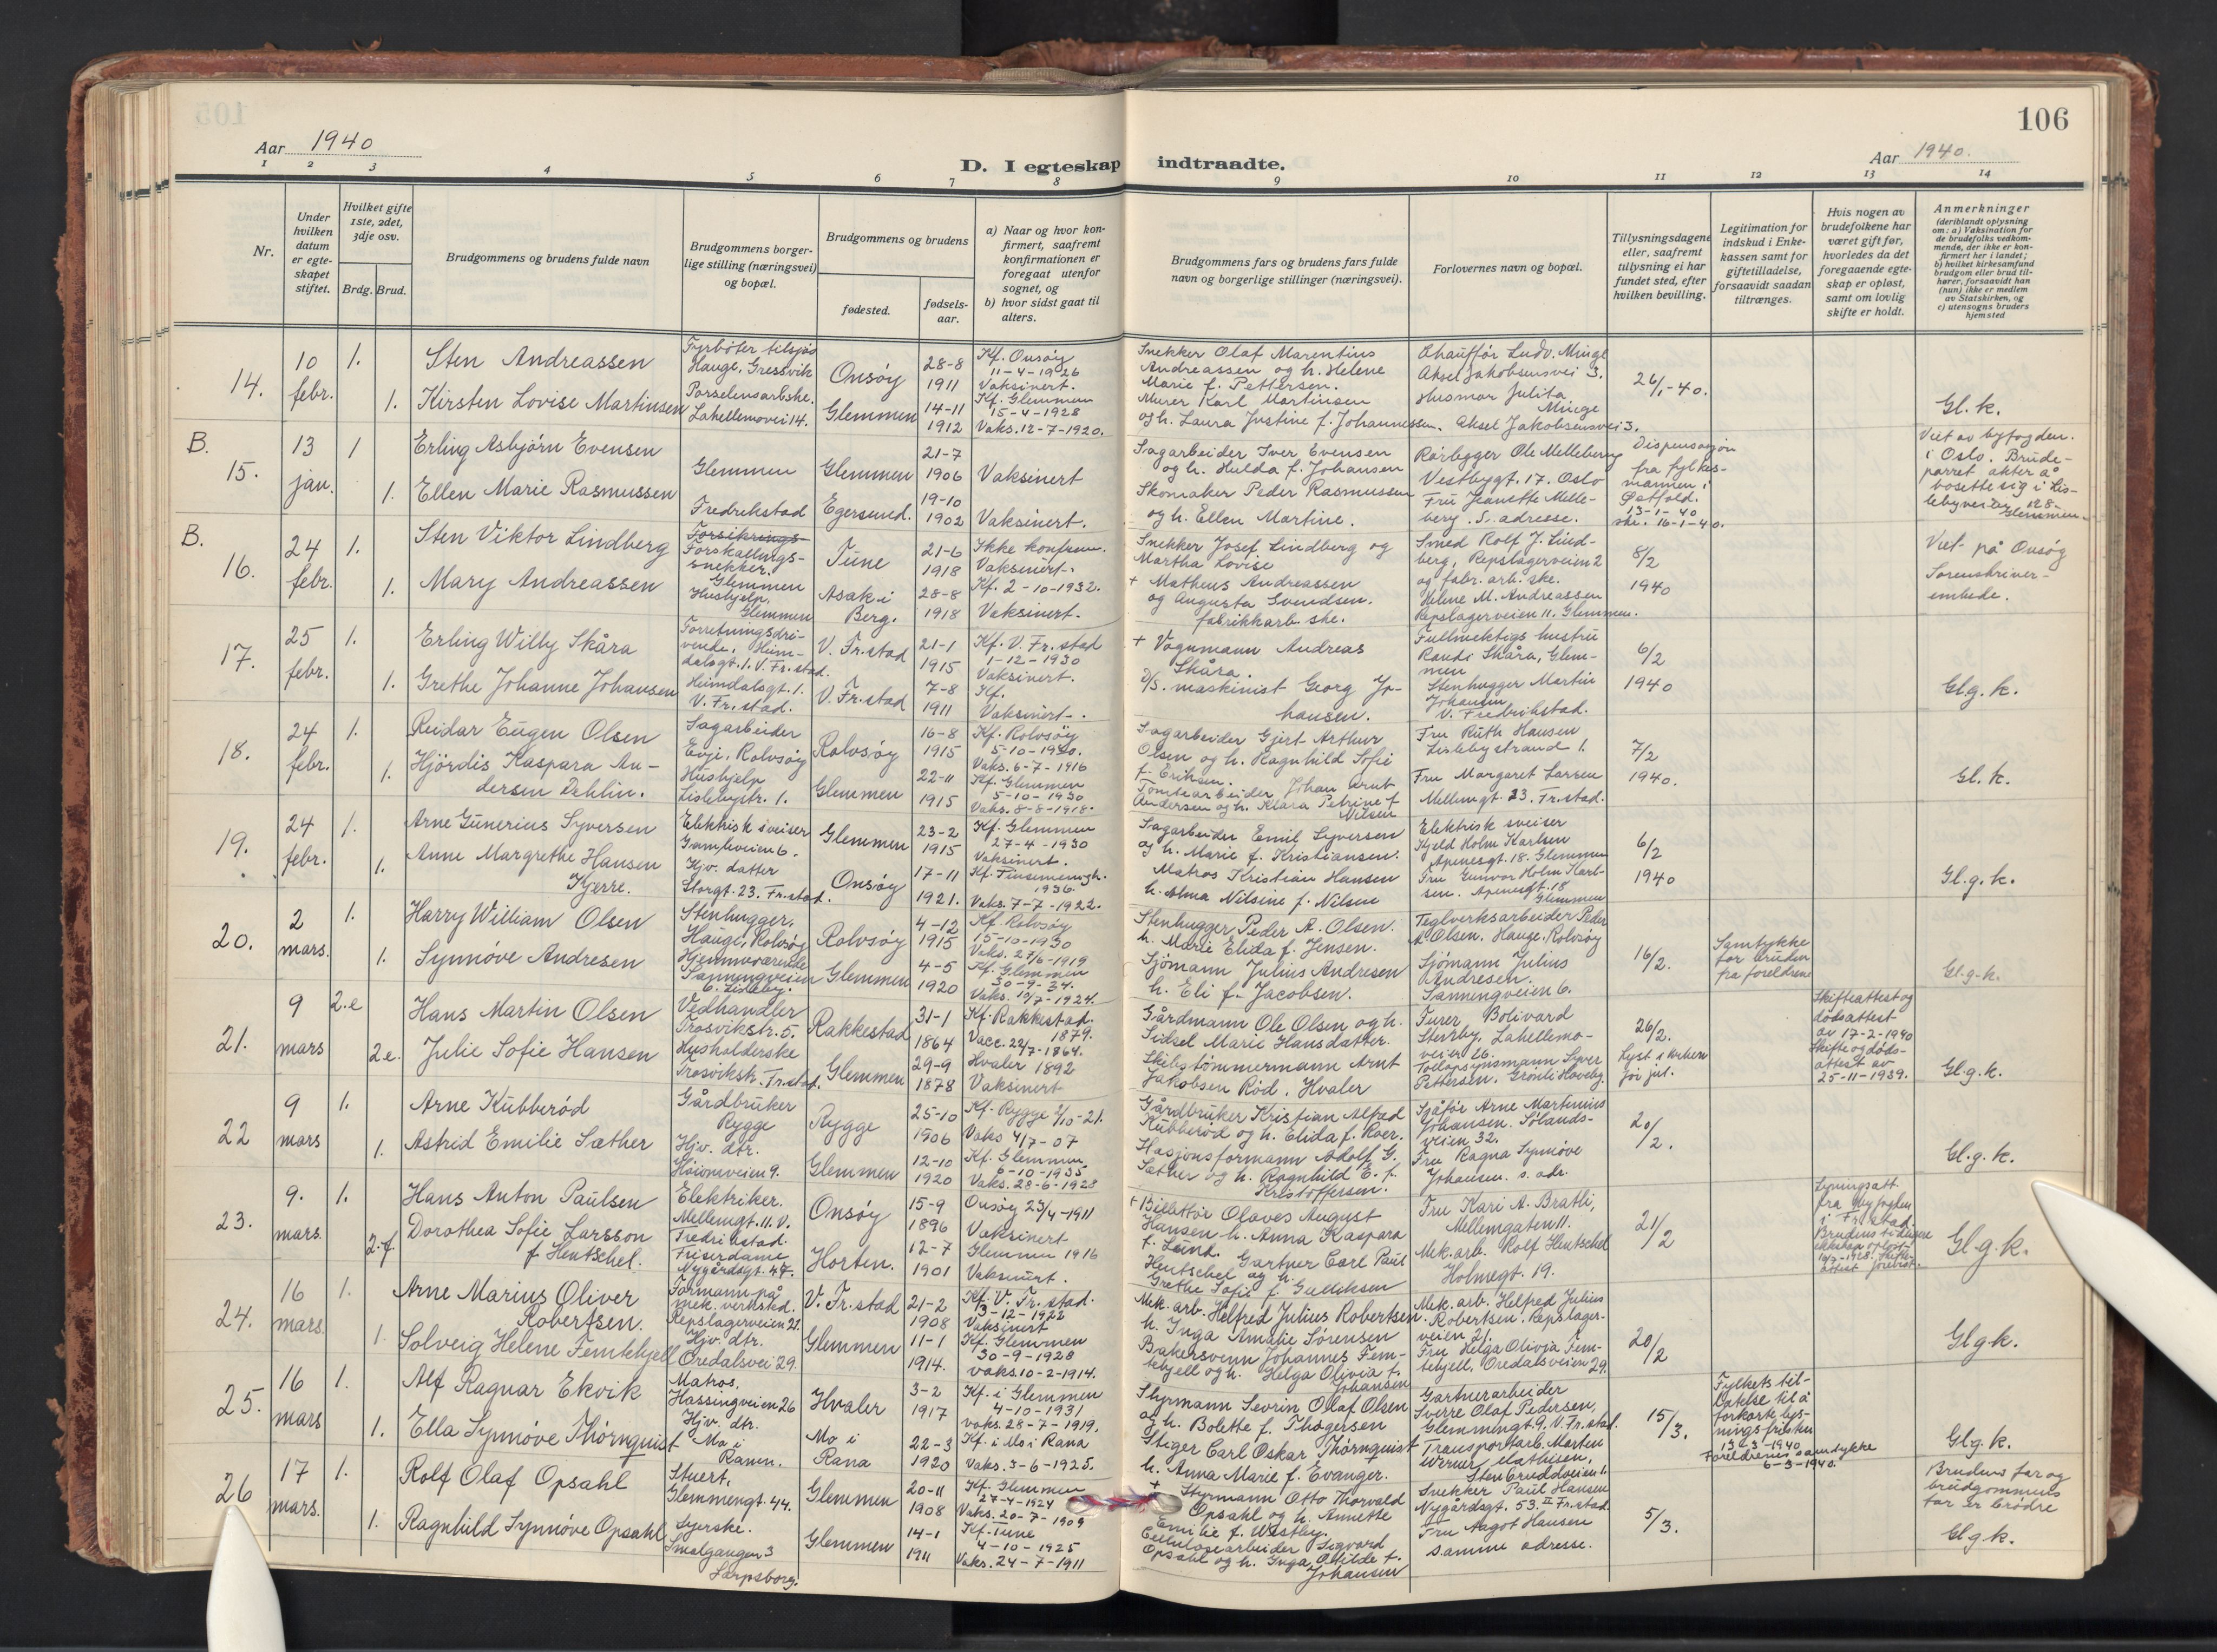 106
Aar 1940
Aar 1940.
D. I egteskap indtraadte.
1 2 3 4 5 6 7 8 9 10 11 12 13 14
Nr.
Under hvilken datum er egteskapet stiftet.
Hvilket gifte 1ste, 2det, 3dje osv.
Brdg. Brud.
Brudgommens og brudens fulde navn
Brudgommens borgerlige stilling (næringsvei) og bopæl.
Brudgommens og brudens
fødested.
fødselsaar.
a) Naar og hvor konfirmert, saafremt konfirmationen er foregaat utenfor sognet, og
b) hvor sidst gaat til alters.
Brudgommens fars og brudens fars fulde navn og borgerlige stillinger (næringsvei).
Forlovernes navn og bopæl.
Tillysningsdagene eller, saafremt tillysning ei har fundet sted, efter hvilken bevilling.
Legitimation for indskud i Enkekassen samt for giftetilladelse, forsaavidt saadan tiltrænges.
Hvis nogen av brudefolkene har været gift før, hvorledes da det foregaaende egteskap er opløst, samt om lovlig skifte er holdt.
Anmerkninger
(deriblandt oplysning om: a) Vaksination for de brudefolks vedkommende, der ikke er konfirmert her i landet; b) hvilket kirkesamfund brudgom eller brud tilhører, forsaavidt han (hun) ikke er medlem av Statskirken, og c) utensogns bruders hjemsted
14. 10 febr. 1. Sten Andreassen
Fyrbøter tilsjøs Hauge, Gressvik Onsøy 28-8 1911 Kf. Onsøy 11-4-1926 Vaksinert.
Snekker Olaf Marentius Andreassen og h. Helene Marie f. Pettersen.
Chauffør Ludv. Minge Aksel Jakobsensvei 3.
1. Kirsten Lovise Martinsen
Porselensarbske. Lahellemovei 14. Glemmen 14-11 1912 Kf. Glemmen 15-4-1928 Vaks. 12-7-1920.
Murer Karl Martinsen og h. Laura Justine f. Johannessen.
Husmor Julita Minge Aksel Jakobsensvei 3.
26/1-40. Gl. k.
B. 15. 13 jan. 1 Erling Asbjørn Evensen
Glemmen Glemmen 21-7 1906 Vaksinert
Sagarbeider Iver Evensen og h. Hulda f. Johansen
Rørlegger Ole Melleberg Vestbygt. 17. Oslo
1. Ellen Marie Rasmussen
Fredrikstad Egersund. 19-10 1902 Vaksinert.
Skomaker Peder Rasmussen og h. Ellen Martine.
Fru Jeanette Melleberg. S. adresse.
Dispensasjon fra fylkesmannen i Østfold. 13-1-40 ske. 16-1-40.
Viet av byfogden i Oslo. Brudeparret akter å bosette sig i Lislebyveien 128 - Glemmen
B. 16. 24 febr. 1. Sten Viktor Lindberg
Forsikrings- Forskallingssnekker. Glemmen Tune 21-6 1918 Ikke konfirm. Vaksinert.
Snekker Josef Lindberg og Martha Lovise
Smed Rolf J. Lindberg, Repslagerveien 2
1. Mary Andreassen
Hushjelp. Glemmen Asak i Berg. 28-8 1918 Kf. 2-10-1932. Vaksinert.
+ Matheus Andreassen og Augusta Svendsen. fabrikkarb.ske.
og fabr. arb. ske. Helene M. Andreassen Repslagerveien 11. Glemmen.
8/2 1940
Viet på Onsøy Sorenskriverembede.
17. 25 febr. 1. Erling Willy Skåra
Forretningsdrivende, Heimdalsgt. 1. V. Fr.stad. V. Fr.stad 21-1 1915 Kf. V. Fr.stad 1-12-1930 Vaksinert.
+ Vognmann Andreas Skåra.
Fullmektigs hustru Randi Skåra, Glemmen
1. Grethe Johanne Johansen
Heimdalsgt. 1. V. Fr.stad. V. Fr.stad 7-8 1911 Kf. Vaksinert.
D/S. maskinist Georg Johansen.
Stenhugger Martin Johansen V. Fredrikstad.
6/2 1940 Gl.g. k.
18. 24 febr. 1. Reidar Eugen Olsen
Sagarbeider Evje, Rolvsøy Rolvsøy 16-8 1915 Kf. Rolvsøy 5-10-1930. Vaks. 6-7-1916
Sagarbeider Gjert Arthur Olsen og h. Ragnhild Sofie f. Eriksen.
Fru Ruth Hansen Lislebystrand 1.
1. Hjördis Kaspara Andersen Dehlin.
Hushjelp Lislebystr. 1. Glemmen 22-11 1915 Kf. Glemmen 5-10-1930 Vaks. 8-8-1918.
Tomtearbeider Johan Arnt Andersen og h. Klara Petrine f. Nilsen
Fru Margaret Larsen Mellemgt. 23. Fr.stad.
7/2 1940. Gl. k.
19. 24 febr. 1. Arne Gunerius Syversen
Elektrisk sveiser Gamleveien 6. Glemmen 23-2 1915 Kf. Glemmen 27-4-1930 Vaksinert.
Sagarbeider Emil Syversen og h. Marie f. Kristiansen.
Elektrisk sveiser Kjeld Holm Karlsen Apenesgt. 18. Glemmen
1. Anne Margrethe Hansen Kjerre.
Hjv. datter Storgt. 23. Fr.stad. Onsøy 17-11 1921. 1936. Vaks. 7-7-1922.
Matros Kristian Hansen h. Alma Nilsine f. Nilsen
Fru Gunvor Holm Karlsen. Apenesgt. 18 Glemmen
6/2 1940 Gl.g. k.
20. 2 mars. 1. Harry William Olsen
Stenhugger. Hauge, Rolvsøy Rolvsøy 4-12 1915 Kf. Rolvsøy 15-10-1930 Vaks. 27/6-1919
Stenhugger Peder A. Olsen. h. Marie Elida f. Jensen.
Teglverksarbeider Peder A. Olsen. Hauge. Rolvsøy
1. Synnöve Andresen
Hjemmeværende Sanningveien 6. Lisleby. Glemmen 4-5 1920 Kf. Glemmen 30-9-34. Vaks. 10/7-1924.
Sjömann Julius Andresen h. Eli f. Jacobsen.
Sjömann Julius Andresen. Sanningveien 6.
16/2. Samtykke for bruden fra foreldrene Gl.g.k.
21. 9 mars 2.e Hans Martin Olsen
Vedhandler Trosvikstr. 5. Rakkestad 31-1 1864 Kf. Rakkestad. 1879. Vacc. 22/7-1864.
Gårdmann Ole Olsen og h. Sidsel Marie Hansdatter.
Furer Bolivard Stensby. Lahellemoveien 26.
2e. Julie Sofie Hansen
Husholderske Trosvikstr. Fr.stad. Glemmen 29-9 1878 Hvaler 1892 Vaksinert
Skibstömmermann Arnt Jakobsen Röd. Hvaler
Tollopsynsmann Syver Pettersen. Grönli Haveby.
26/2. Lyst i kirken
Skifteattest og dødsattest av 17-2-1940 Skifte og dødsattest av 25-11-1939. Gl.g.k.
22 9 mars 1. Arne Kubberöd
Gårdbruker Rygge Rygge 25-10 1906 Kf. Rygge 2/10-21. Vaks 4/7-07
Gårdbruker Kristian Alfred Kubberöd og h. Elida f. Roer.
Sjåför Arne Martinius Johansen. Sölandsveien 32.
1. Astrid Emilie Sæther
Hjv. dtr. Haiomveien 9. Glemmen 12-10 1920 Kf. Glemmen 6-10-1935 Vaks. 28-6-1923
Stasjonsformann Adolf G. Sæther og h. Ragnhild E. f. Kristoffersen.
Fru Ragna Synnöve Johansen. s. adr.
20/2. Gl.g. k.
23. 9. mars. 1. Hans Anton Paulsen
Elektriker. Mellemgt. 11. V. Fredrikstad. Onsøy 15-9 1896 Onsøy 23/4-1911 Vaksinert
+ Billettör Olaves August Hansen h. Anna Kaspara f. Lund.
Fru Kari A. Bratli, Mellemgaten 11.
2.f. Dorothea Sofie Larsson f. Hentschel.
Friserdame Nygårdsgt. 47. Horten. 12-7 1901 Glemmen 1916 Vaksinert.
Gartner Carl Paul Hentschel og h. Grethe Sofie f. Gulliksen
Mek. arb. Rolf Hentschel Holmegt. 19.
21/2 Gl.g.k.
24. 16 mars. 1. Arne Marius Oliver Robertsen.
Formann på mek. verksted. Repslagerveien 21. V. Fr.stad 21-2 1908 Kf. V. Fr. stad. 3-12-1922 Vaksinert
Mek. arb. Helfred Julius Robertsen. h. Inga Amalie Sørensen
Mek. arb. Helfred Julius Robertsen. Repslagerveien 21.
1. Solveig Helene Femtehjell
Hjv. dtr. Oredalsvei 29. Glemmen 11-1 1914. Kf. Glemmen 30-9-1928 vaks. 10-2-1914.
Bakersvenn Johannes Femtehjell og h. Helga Olivia f. Johansen
Fru Helga Olivia Femtehjell, Oredalsveien 29.
20/2 Gl g k.
25. 16 mars 1. Alf Ragnar Ekvik
Matros, Hassingveien 26 Hvaler 3-2 1917 Kf. i Glemmen 4-10-1931 vaks. 28-7-1919.
Styrmann Sevrin Olaf Olsen og h. Bolette f. Thogersen
Gartnerarbeider Sverre Olaf Pedersen, Glemmengt. 9. V. Fr.stad.
1. Ella Synnöve Thörnquist
Hjv. dtr. Mo i Ranen. Mo i Rana 22-3 1920 Kf. i Mo i Rana Vaks. 3-6-1925.
Stiger Carl Oskar Thörnquist h. Anna Marie f. Evanger.
Transportarb. Marten Werner Mathisen,
15/3. Fylkets tillatelse til å forkorte lysningsfristen 13-3-1940 Foreldrenes samtykke 6-3-1940. Gl g. k.
26 17 mars. 1. Rolf Olaf Opsahl
Stuert. Glemmengt. 44. Glemmen 20-11 1908 Kf. Glemmen 27-4-1924 Vaks. 20-7-1909
+ Styrmann Otto Thorvald Opsahl og h. Annette Emilie f. Westby.
Snekker Paul Hansen Nygårdsgt. 53. II Fr.stad
1. Ragnhild Synnöve Opsahl
Syerske. Smalgangen 3 Sarpsborg. Glemmen 14-1 1911 Kf. Tune 4-10-1925 Vaks. 24-7-1911
Cellulosearbeider Sigvard Opsahl og h. Inga Otilde f. Johansen
Fru Aagot Hansen samme adresse.
5/3. Brudens far og brudgommens far er brödre
Gl g k.